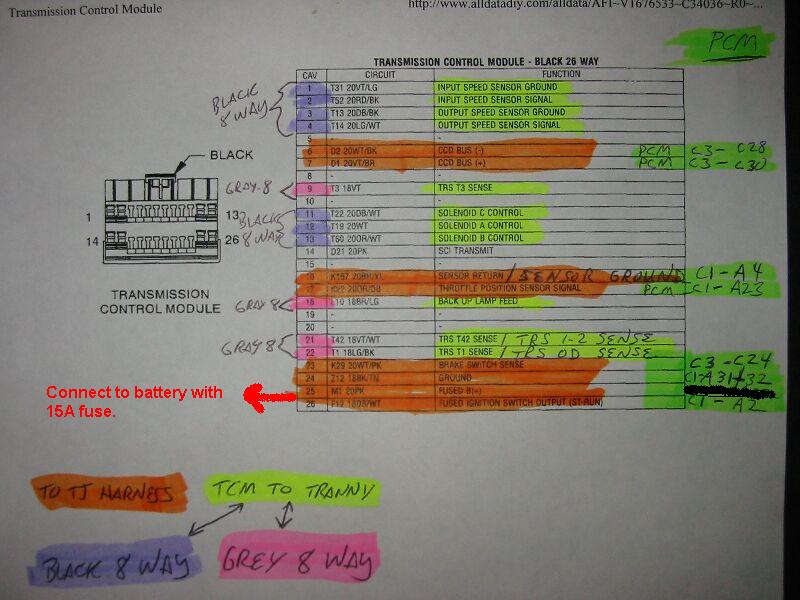 Transmission Control Module
http://www.alldatadiy.com/alldata/AFI~V1676533~C34036~R0~...
PCM
TRANSMISSION CONTROL MODULE - BLACK 26 WAY
CAV CIRCUIT FUNCTION
1 T31 20VT/LG INPUT SPEED SENSOR GROUND
2 T52 20RD/BK INPUT SPEED SENSOR SIGNAL
3 T13 20DB/BK OUTPUT SPEED SENSOR GROUND
4 T14 20LG/WT OUTPUT SPEED SENSOR SIGNAL
BLACK
8 WAY
5 - -
6 D2 20WT/BK CCD BUS (-) PCM C3-C28
7 D1 20VT/BR CCD BUS (+) PCM C3-C30
8 - -
GRAY-8
9 T3 18VT TRS T3 SENSE
10 - -
11 T22 20DB/WT SOLENOID C CONTROL
12 T19 20WT SOLENOID A CONTROL
13 T60 20OR/WT SOLENOID B CONTROL
BLACK
8 WAY
14 D21 20PK SCI TRANSMIT
15 - -
16 K167 20BK/YL SENSOR RETURN / SENSOR GROUND C1-A4
17 K22 20OR/DB THROTTLE POSITION SENSOR SIGNAL PCM C1-A23
GRAY 8
18 L10 18BR/LG BACK UP LAMP FEED
19 - -
20 - -
GRAY 8
21 T42 18VT/WT TRS T42 SENSE / TRS 1-2 SENSE
22 T1 18LG/BK TRS T1 SENSE / TRS OD SENSE
23 K29 20WT/PK BRAKE SWITCH SENSE C3-C24
24 Z12 18BK/TN GROUND C1-A31+32
25 M1 20PK FUSED B(+)
26 F12 18DB/WT FUSED IGNITION SWITCH OUTPUT (ST-RUN) C1-A2
BLACK
1 13
14 26
TRANSMISSION
CONTROL MODULE
Connect to battery with
15A fuse.
TO TJ HARNESS
TCM TO TRANNY
BLACK 8 WAY
GREY 8 WAY